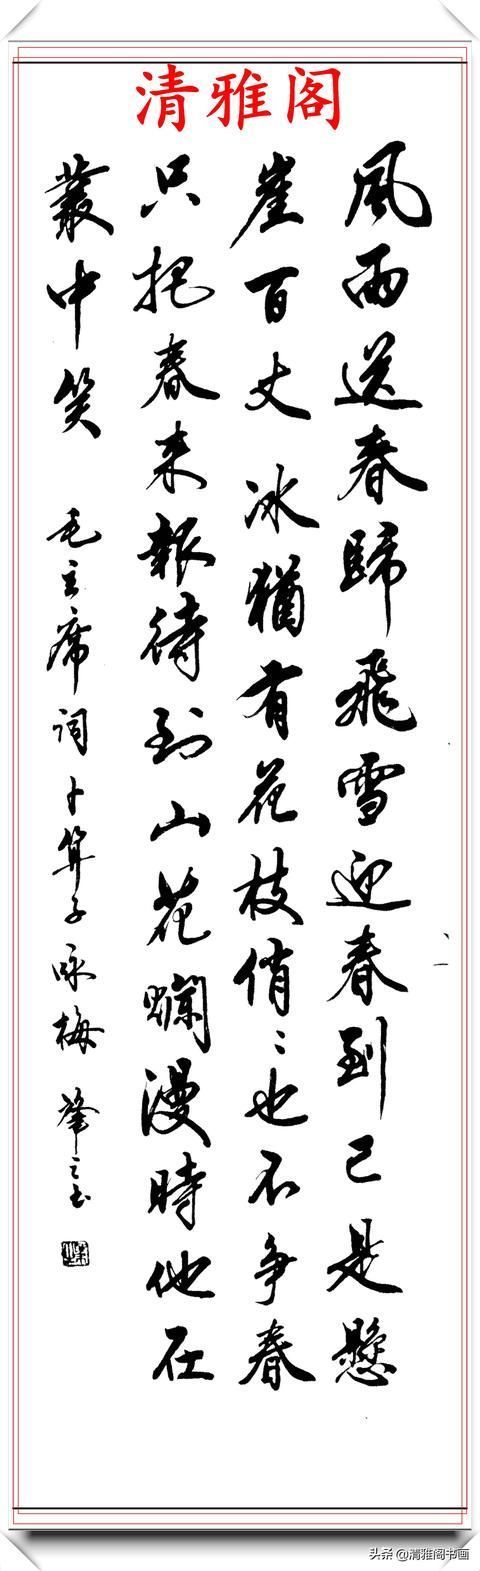 清雅阁
風雨送春歸飛雪迎春到已是懸
崖百丈冰猶有花枝俏〻也不争春
只把春来報待到山花爛漫時他在
叢中笑 毛主席词卜算子咏梅
头条 @清雅阁书画